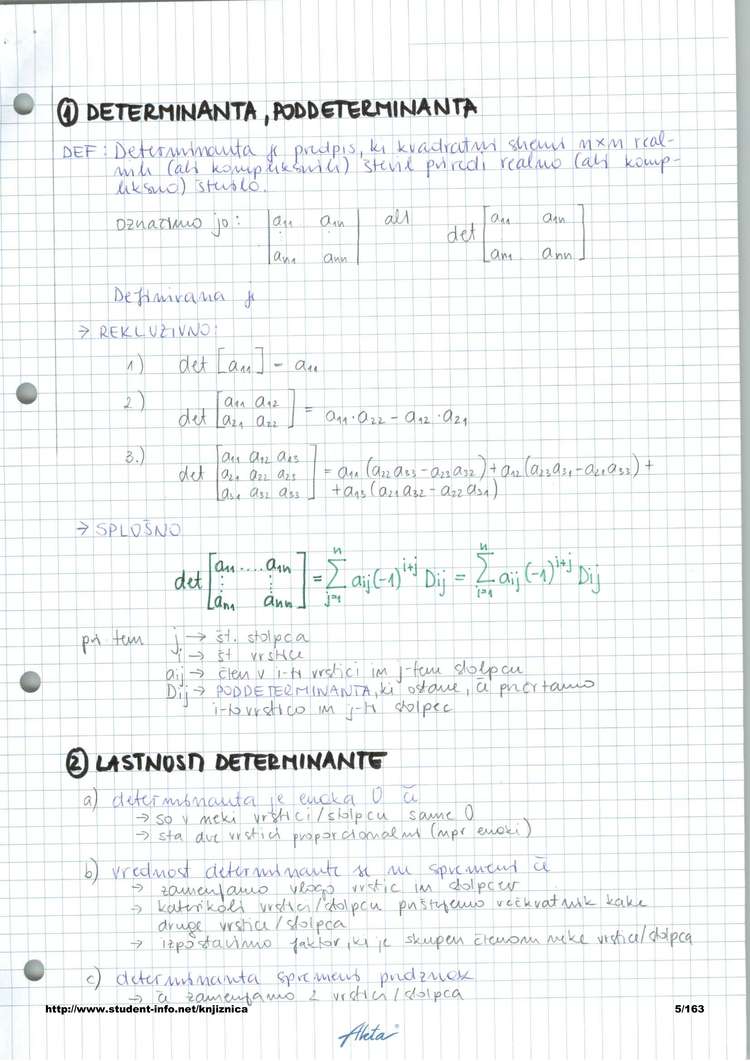 ① DETERMINANTA, PODDETERMINANTA
DEF: Determinanta je predpis, ki kvadratni shemi n×n real-
nih (ali kompliksnih) števil priredi realno (ali komp-
liksno) število.
označimo jo: |a₁₁ a₁n| ali det [a₁₁ a₁n]
|an₁ ann| [an₁ ann]
Definirana je
→ REKLUZIVNO:
1) det [a₁₁] = a₁₁
2) det [a₁₁ a₁₂; a₂₁ a₂₂] = a₁₁·a₂₂ - a₁₂·a₂₁
3.) det [a₁₁ a₁₂ a₁₃; a₂₁ a₂₂ a₂₃; a₃₁ a₃₂ a₃₃] = a₁₁(a₂₂a₃₃ - a₂₃a₃₂) + a₁₂(a₂₃a₃₁ - a₂₁a₃₃) +
+ a₁₃(a₂₁a₃₂ - a₂₂a₃₁)
→ SPLOŠNO
det [a₁₁ .... a₁n; ⋮ ⋮; an₁ ann] = Σⁿj=1 aij(-1)^i+j Dij = Σⁿi=1 aij(-1)^i+j Dij
pri tem j → št. stolpca
i → št vrstice
aij → člen v i-ti vrstici in j-tem stolpcu
Dij → PODDETERMINANTA, ki ostane, če prečrtamo
i-to vrstico in j-ti stolpec
② LASTNOSTI DETERMINANTE
a) determinanta je enaka 0 če
→ so v neki vrstici/stolpcu same 0
→ sta dve vrstici proporcionalni (npr enaki)
b) vrednost determinante se ne spremeni če
→ zamenjamo vlogo vrstic in stolpcev
→ katerikoli vrstici/stolpcu prištejemo večkratnik kake
druge vrstice/stolpca
→ izpostavimo faktor, ki je skupen členom neke vrstice/stolpca
c) determinanta spremeni predznak
→ če zamenjamo 2 vrstici/stolpca
http://www.student-info.net/knjiznica 5/163